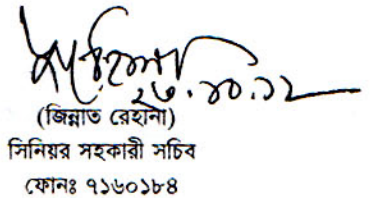 ২৩.১০.১২
(জিন্নাত রেহানা)
সিনিয়র সহকারী সচিব
ফোনঃ ৭১৬০১৮৪